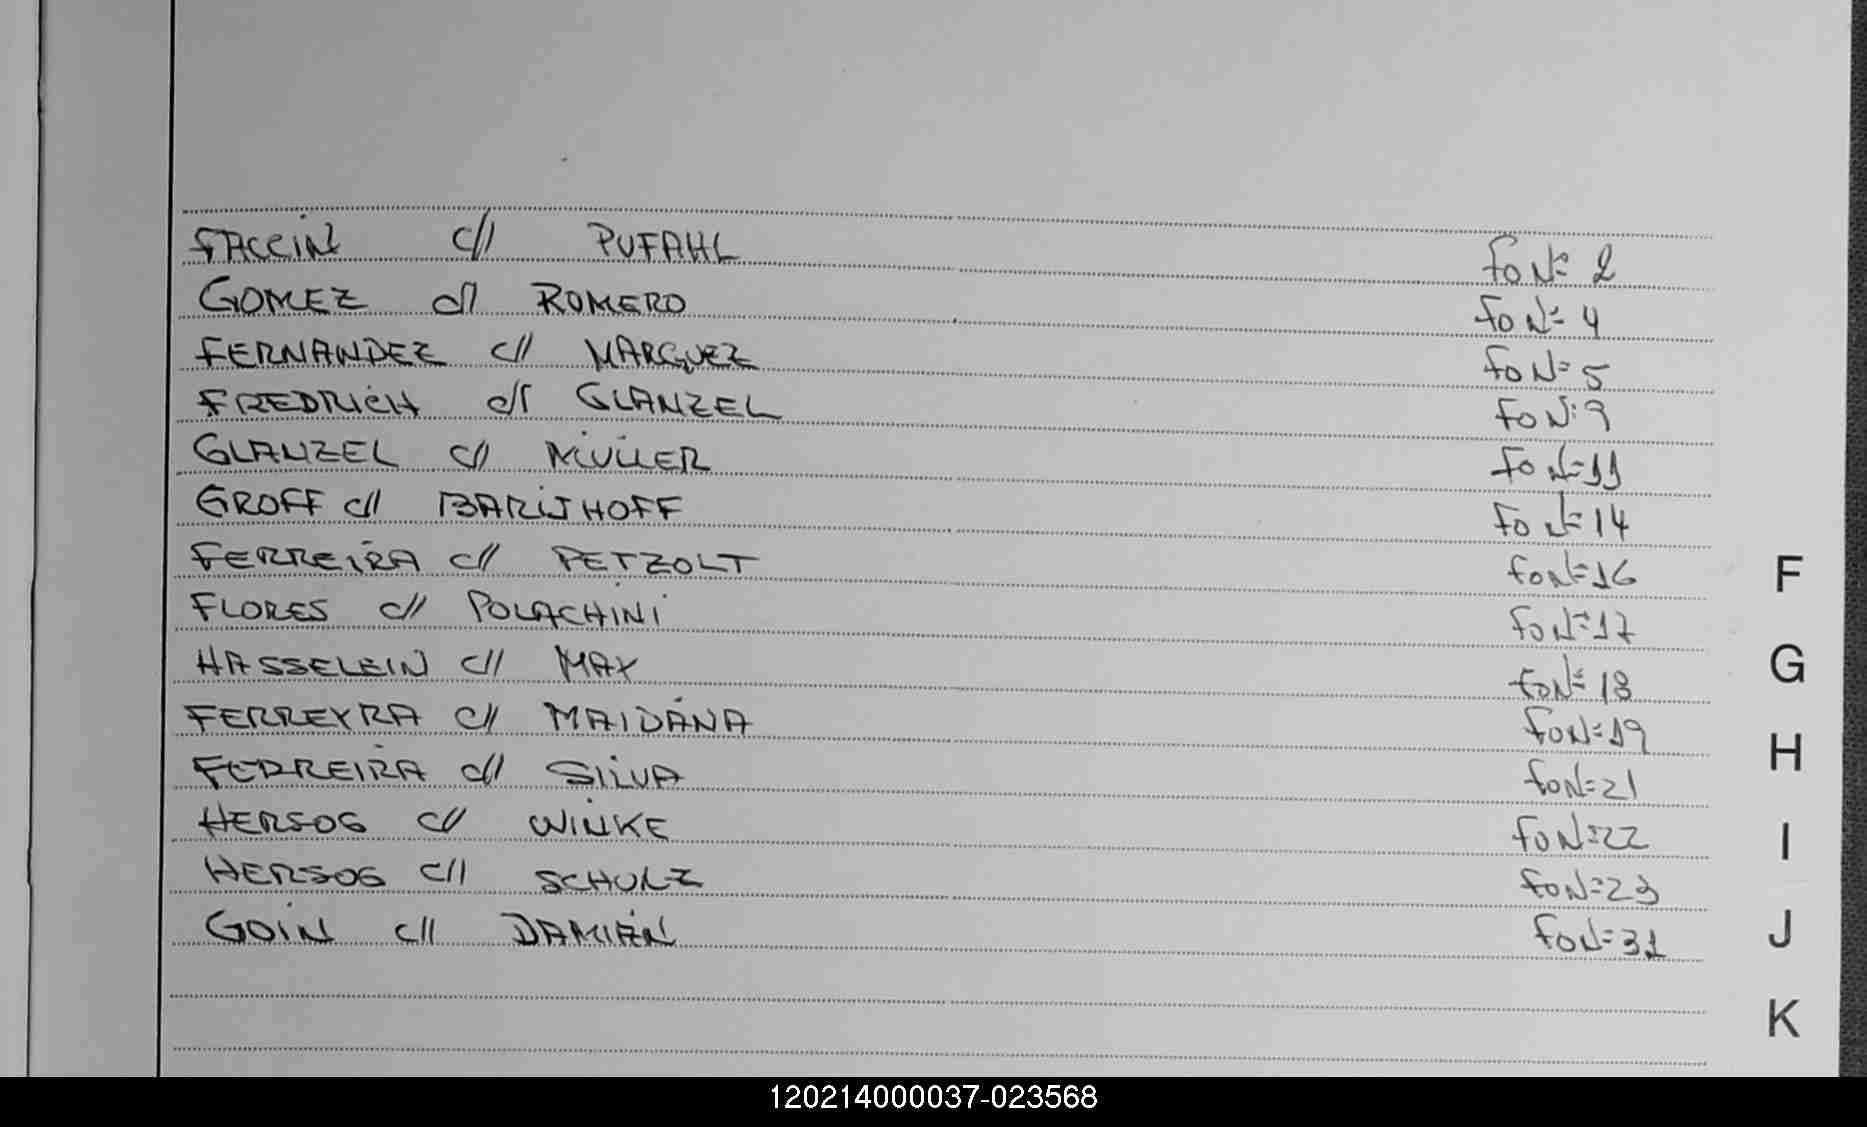 FACCIN c// PUFAHL Fo Nº 2
GOMEZ c// ROMERO Fo Nº 4
FERNANDEZ c// MARQUEZ Fo Nº 5
FREDRICH c// GLANZEL Fo Nº 9
GLANZEL c// MÜLLER Fo Nº 11
GROFF c// Fo Nº 14
FERREIRA c// PETZOLT Fo Nº 16
F
FLORES c// POLACHINI Fo Nº 17
G
HASSELEIN c// MAX Fo Nº 18
FERREYRA c// MAIDANA Fo Nº 19
H
FERREIRA c// SILVA Fo Nº 21
HERSOG c// WINKE Fo Nº 22
I
HERSOG c// SCHULZ Fo Nº 23
GOIN c// DAMIAN Fo Nº 31
J
K
120214000037-023568